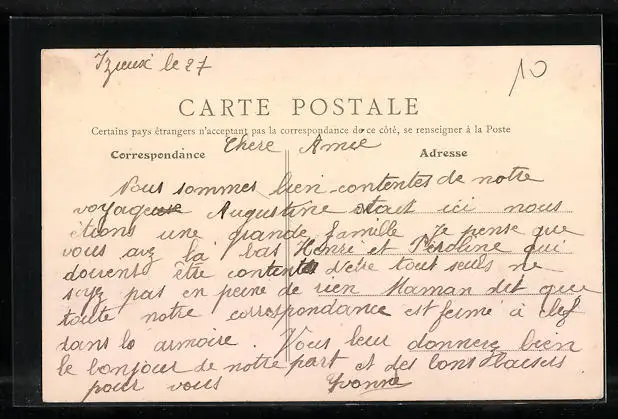 Izieux le 27
10
CARTE POSTALE
Certains pays étrangers n'acceptant pas la correspondance de ce côté, se renseigner à la Poste
Correspondance
Adresse
Chere Amee
Nous sommes bien contentes de notre
voyage Augustine etait ici nous
étions une grande famille je pense que
vous avez la bas Henri et Péroline qui
doivent être contents d'etre tout seuls ne
soyez pas en peine de rien Maman dit que
toute notre correspondance est fermé à clef
dans lo armoire. Vous leur donnerez bien
le bonjour de notre part et des bons Baisers
pour vous Yvonne